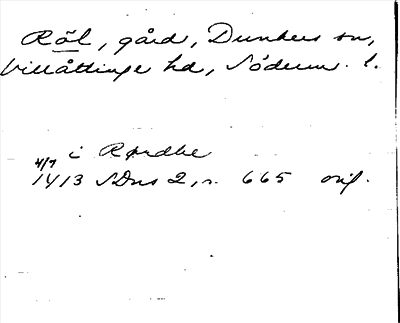 Röl, gård, Dunkers sn,
Villåttinge hd, Söderm. l.
i Rørdhe
4/7
1413 SDns 2, n. 665 orig.